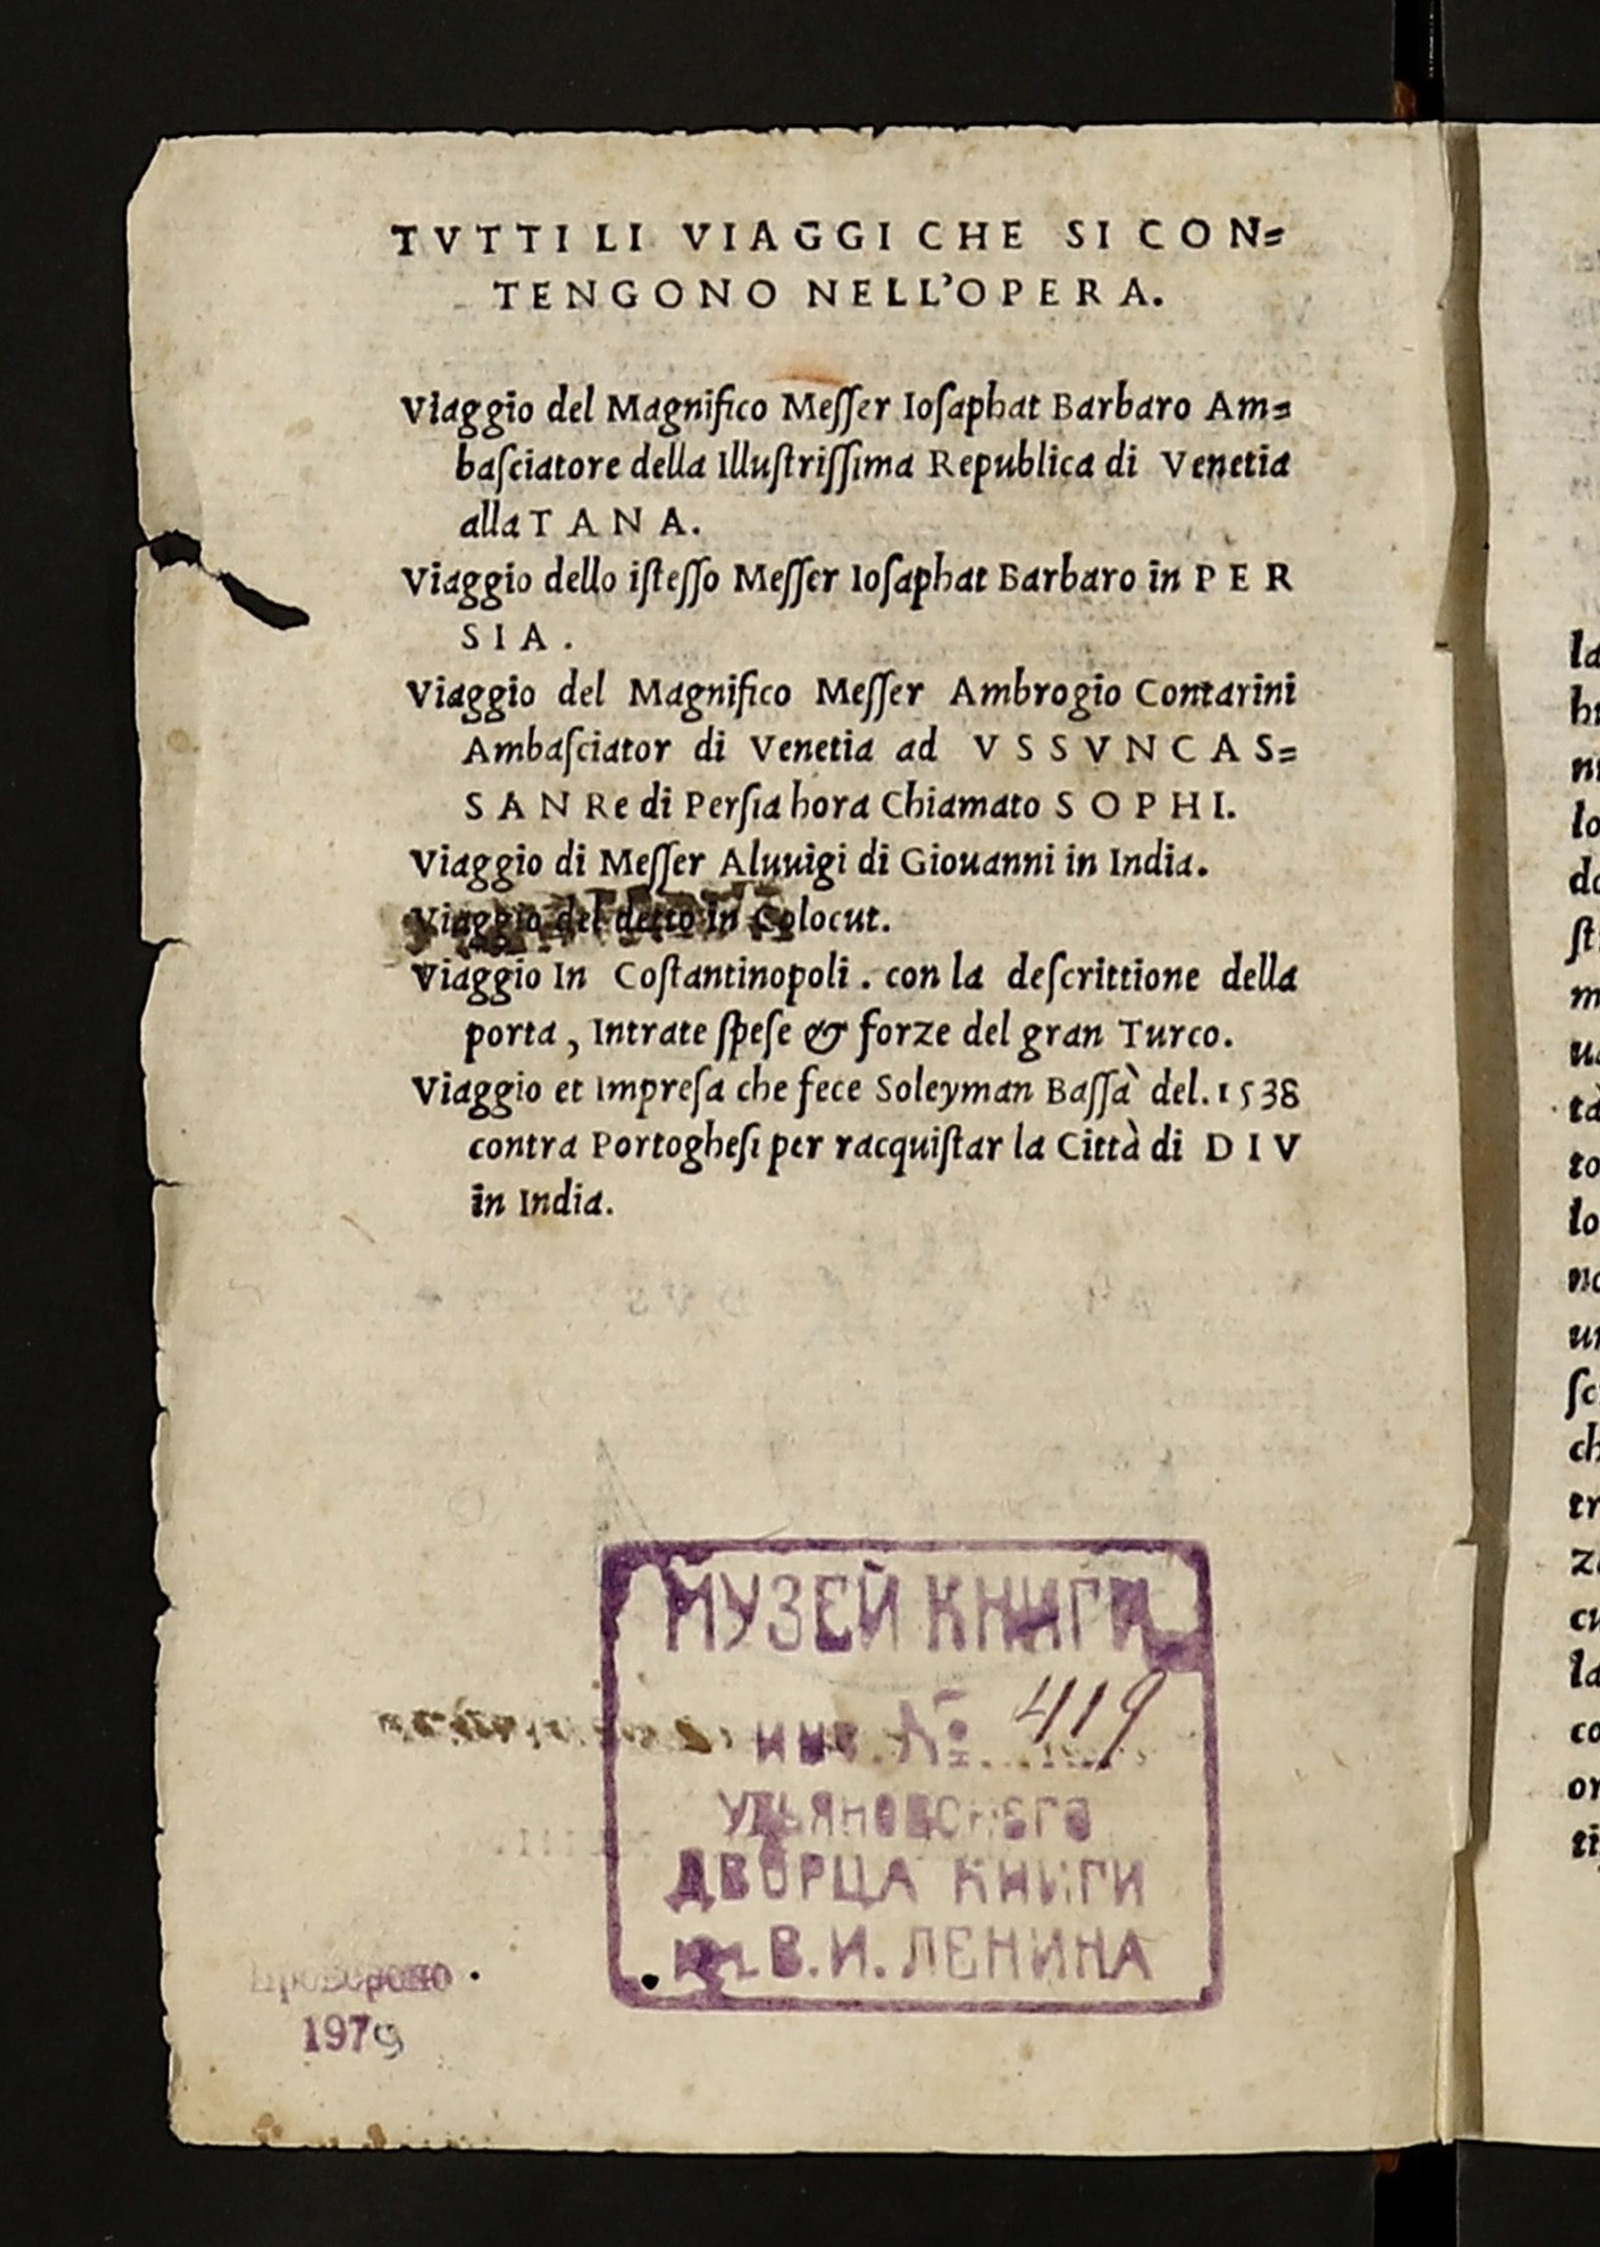 TVTTI LI VIAGGI CHE SI CON=
TENGONO NELL'OPERA.
Viaggio del Magnifico Meſſer Ioſaphat Barbaro Am=
baſciatore della Illuſtriſſima Republica di Venetia
alla TANA.
Viaggio dello iſteſſo Meſſer Ioſaphat Barbaro in PER
SIA.
Viaggio del Magnifico Meſſer Ambrogio Contarini
Ambaſciator di Venetia ad VSSVNCAS=
SAN Re di Perſia hora Chiamato SOPHI.
Viaggio di Meſſer Aluuigi di Giouanni in India.
Viaggio del detto in Colocut.
Viaggio In Coſtantinopoli. con la deſcrittione della
porta, Intrate ſpeſe & forze del gran Turco.
Viaggio et Impreſa che fece Soleyman Baſſà del. 1538
contra Portogheſi per racquiſtar la Città di DIV
in India.
МУЗЕЙ КНИГИ
инв. № 419
УЛЬЯНОВСКОГО
ДВОРЦА КНИГИ
им. В.И. ЛЕНИНА
Проверено
1979
la
lo
do
ſt
m
tà
to
lo
ſc
ch
tr
la
co
or